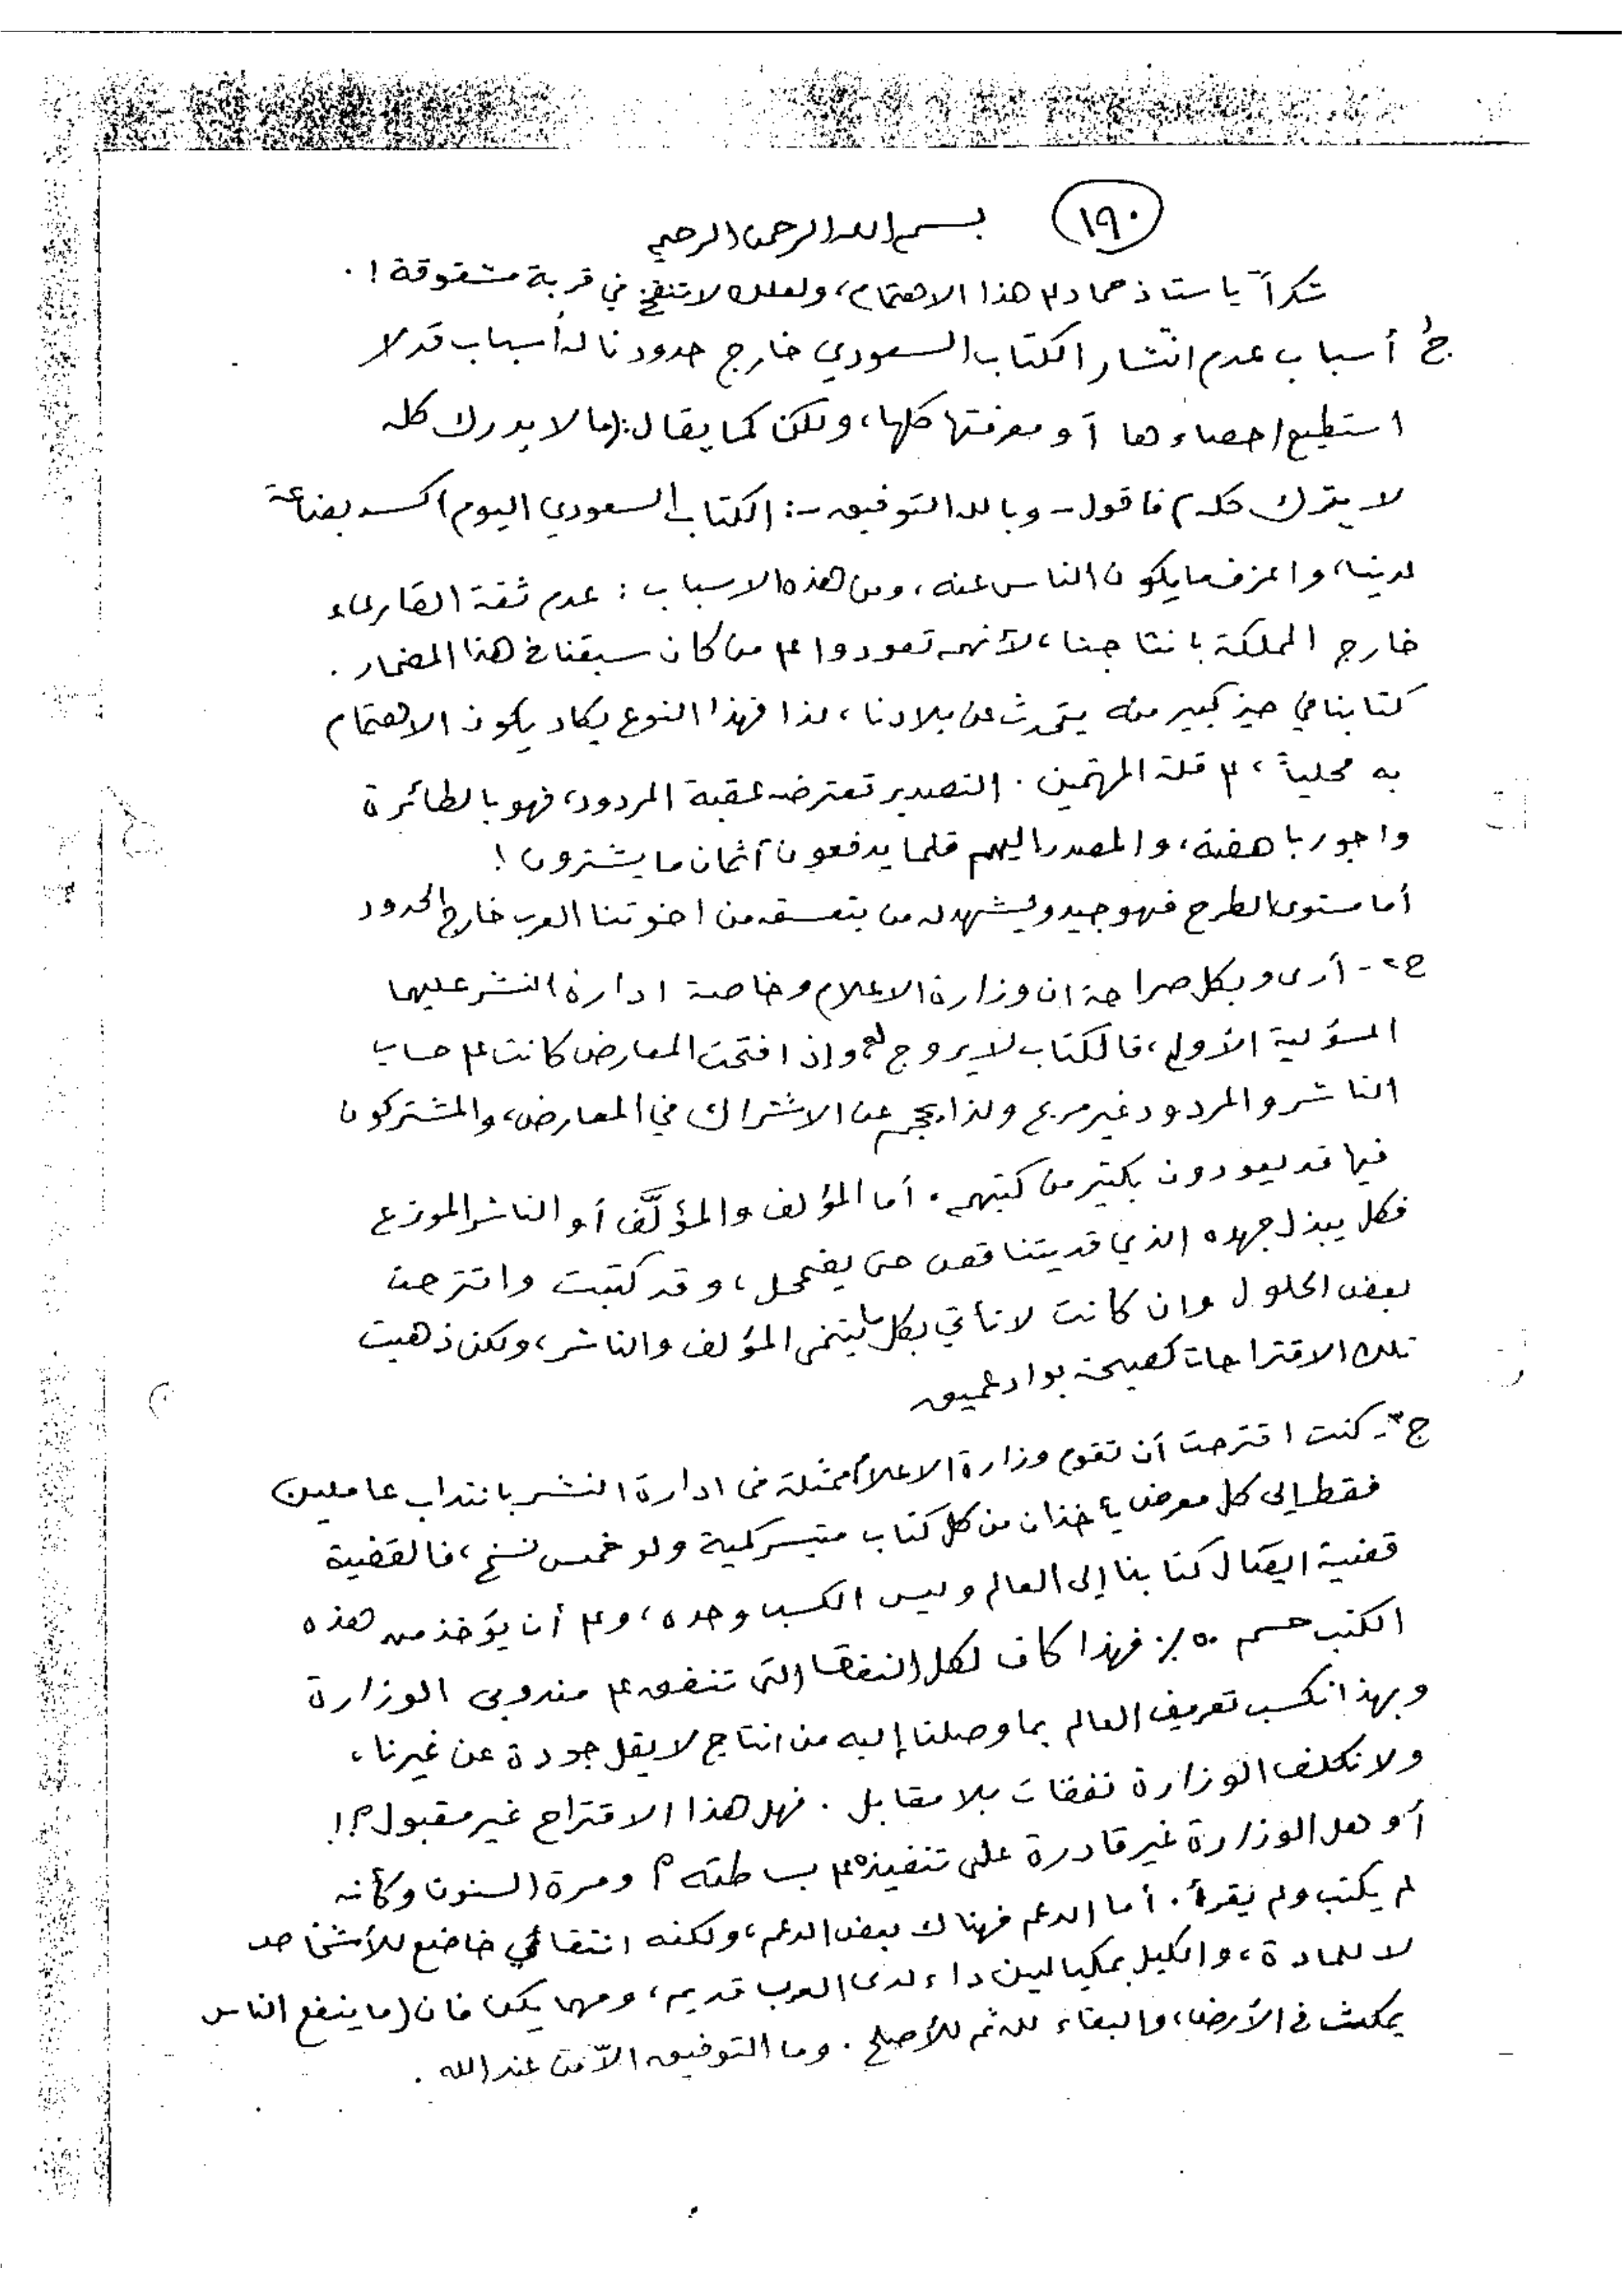 ١٩٠ بسم الله الرحمن الرحيم
شكراً يا ستاذ حماد على هذا الاهتمام، ولعلك لا تنفخ في قربة مشقوقة !.
ج١ أسباب عدم انتشار الكتاب السعودي خارج حدودنا له أسباب قد لا
استطيع احصاءها أو معرفتها كلها، ولكن كما يقال: (ما لا يدرك كله
لا يترك كله) فاقول - وبالله التوفيق -: الكتاب السعودي اليوم اكسد بضاعة
لدينا، واعزف ما يكون الناس عنه، ومن هذه الاسباب : عدم ثقة القارىء
خارج المملكة بانتاجنا، لأنهم تعودوا على من كان سبقنا في هذا المضمار .
كتابنا في حيز كبير منه يتحدث عن بلادنا، لذا فهذا النوع يكاد يكون الاهتمام
به محلياً، على قلة المهتمين . التصدير تعترضه عقبة المردود، فهو بالطائرة
واجور باهضة، والمصدر اليهم قلما يدفعون أثمان ما يشترون !
أما مستوى الطرح فهو جيد ويشهد له من يتعسقه من اخوتنا العرب خارج الحدود
ج٢ - أرى وبكل صراحة ان وزارة الاعلام وخاصة ادارة النشر عليها
المسؤلية الأولى، فالكتاب لا يروج له وإذا افتتحت المعارض كانت على حساب
الناشر والمردود غير مربح ولذا يحجم عن الاشتراك في المعارض، والمشتركون
فيها قد يعودون بكثير من كتبهم . أما المؤلف والمؤلَّف أو الناشر الموزع
فكل يبذل جهده الذي قد يتناقص حتى يضمحل، وقد كتبت واقترحت
بعض الحلول وان كانت لا تأتي بكل ما يتمنى المؤلف والناشر، ولكن ذهبت
تلك الاقتراحات كصيحة بواد عميق
ج٣ - كنت اقترحت أن تقوم وزارة الاعلام ممثلة في ادارة النشر بانتداب عاملين
فقط إلى كل معرض يأخذان من كل كتاب متيسر كمية ولو خمس نسخ، فالقضية
قضية ايصال كتابنا إلى العالم وليس الكسب وحده، وعلى أن يؤخذ من هذه
الكتب حسم ٥٠٪ فهذا كاف لكل النفقات التي تنفق على مندوبي الوزارة
وبهذا نكسب تعريف العالم بما وصلنا إليه من انتاج لا يقل جودة عن غيرنا،
ولا نكلف الوزارة نفقات بلا مقابل . فهل هذا الاقتراح غير مقبول ؟!
أو هل الوزارة غير قادرة على تنفيذه على بساطته ؟ ومرة السنون وكأنه
لم يكتب ولم يقرأ . أما الدعم فهناك بعض الدعم، ولكنه انتقائي خاضع للأشخاص
لا للمادة، والكيل بمكيالين داء لدى العرب قديم، ومهما يكن فان (ما ينفع الناس
يمكث في الأرض، والبقاء لله ثم للأصلح . وما التوفيق الاّ من عند الله .